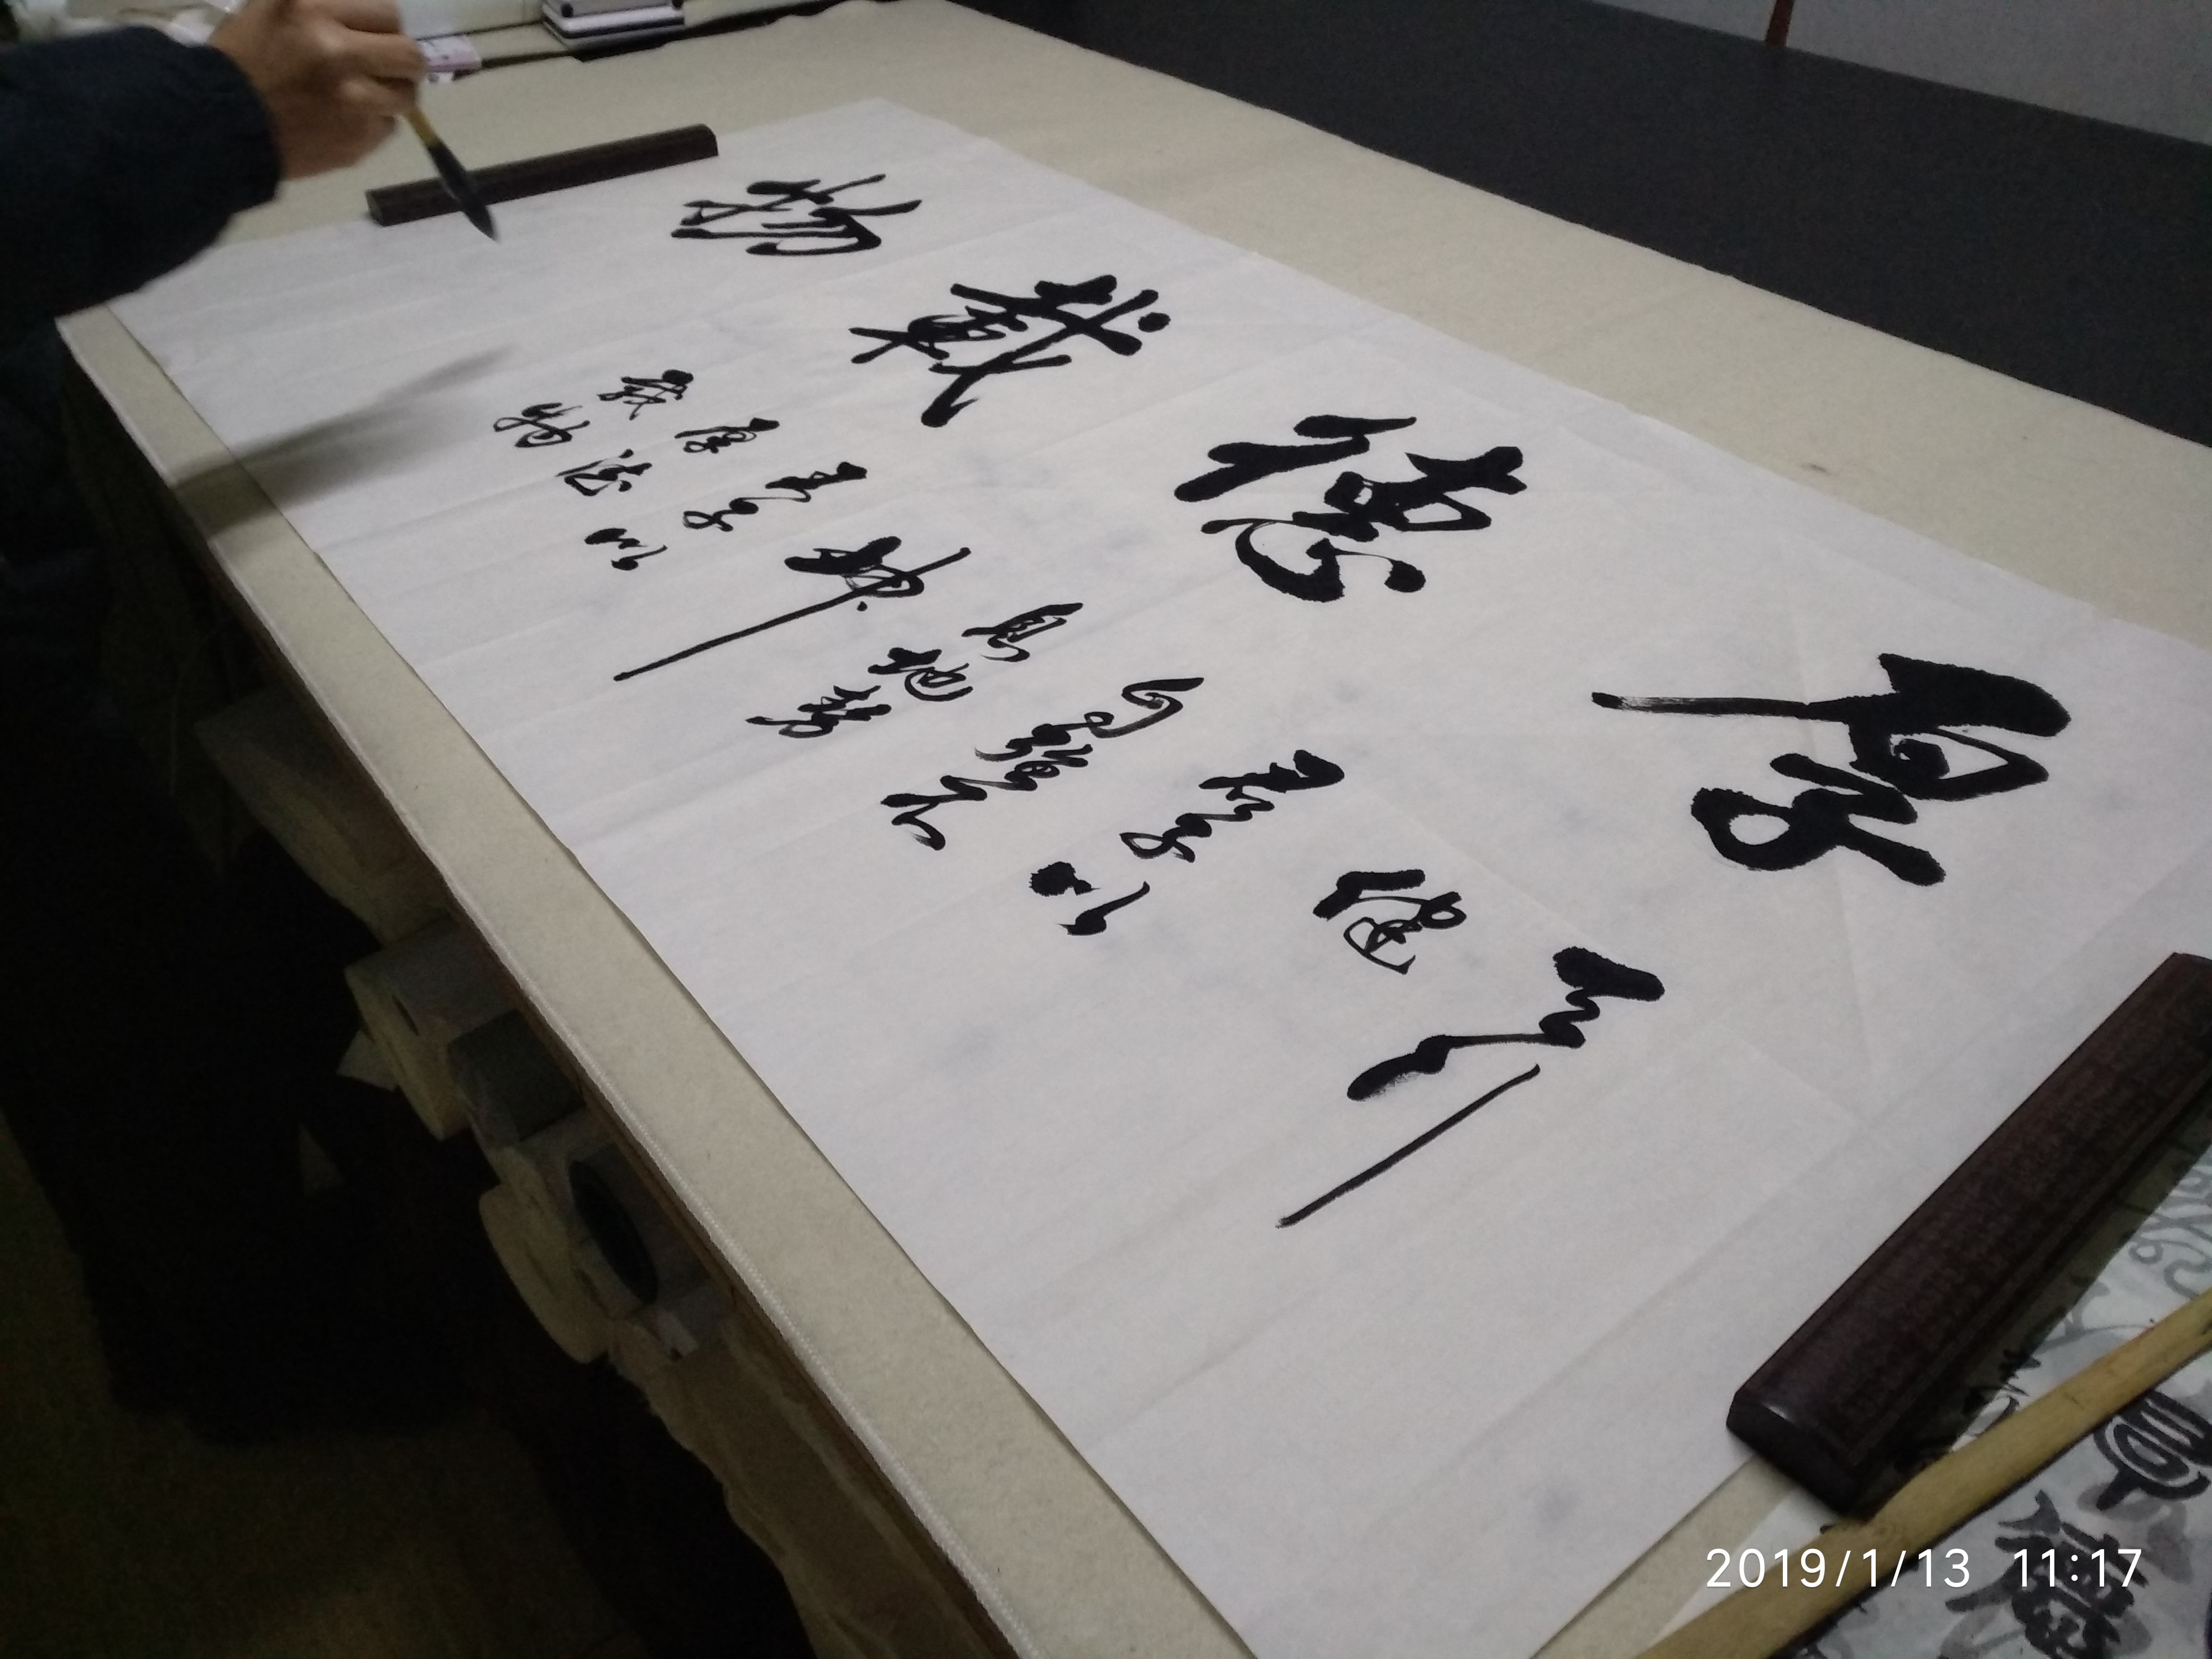 厚德載物
天行
健
君子以
自強不
息地勢
坤
君子以
厚德
載物
2019/1/13 11:17